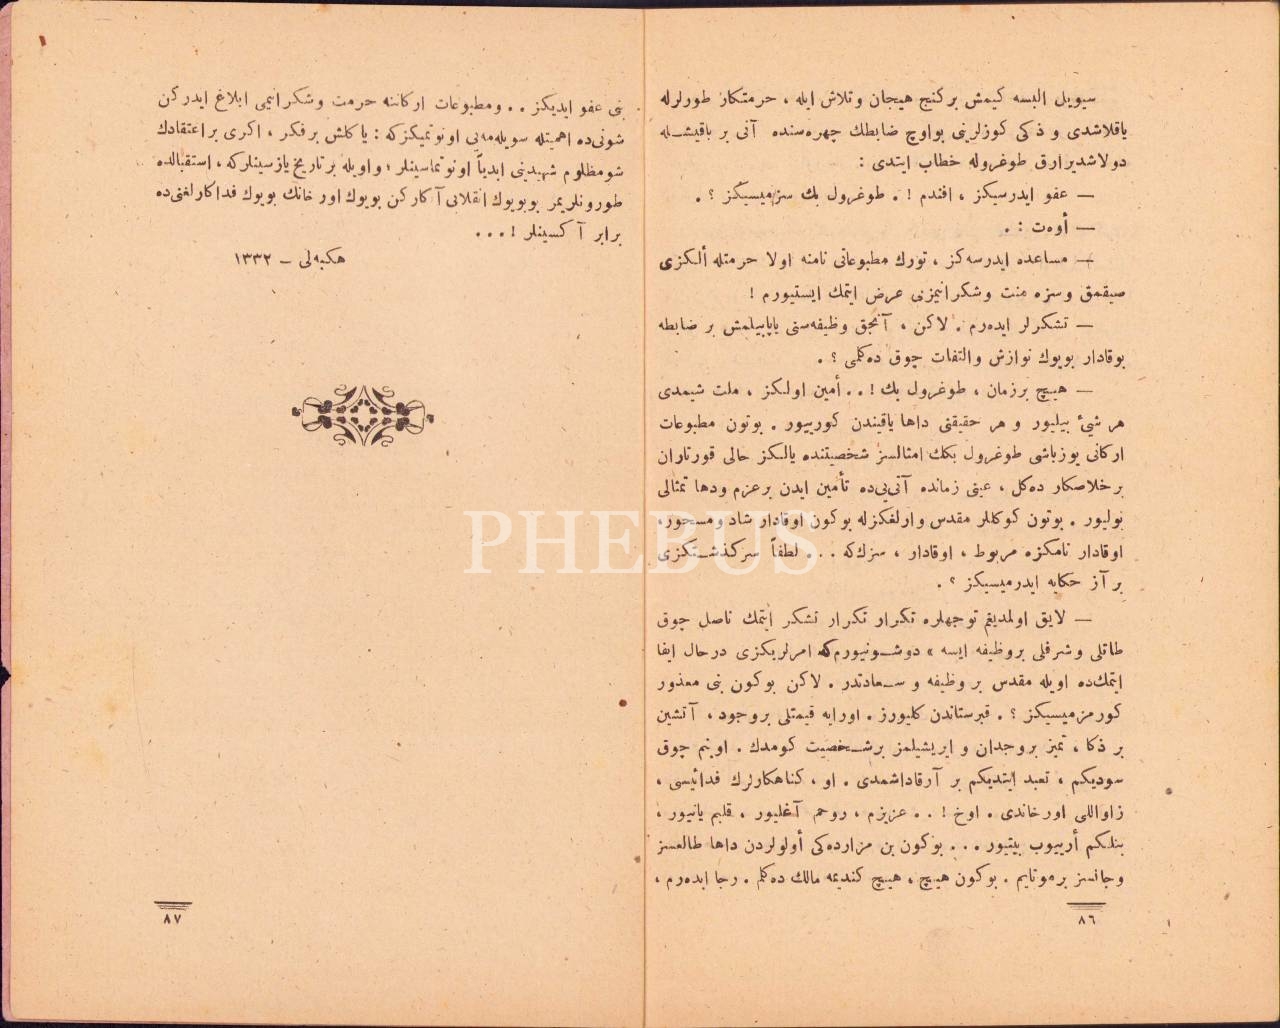 سيويل البسه كيمش بركنج هيجان وتلاش ايله ، حرمتكار طورلرله
ياقلاشدى و ذكى كوزلرينى بواوچ ضابطك چهره‌سنده آنى بر باقيشله
دولاشديرارق طوغروله خطاب ايتدى :
— عفو ايدرسيكز ، افندم ! . طوغرول بك سزميسيكز ؟ .
— أوه‌ت : .
— مساعده ايدرسه‌كز ، تورك مطبوعاتى نامنه اولا حرمتله ألكزى
صيقمق وسزه منت وشكرانيمزى عرض ايتمك ايستيورم !
— تشكرلر ايده‌رم . لاكن ، آنجق وظيفه‌سنى ياپابيلمش بر ضابطه
بوقادار بويوك نوازش والتفات چوق ده‌كلمى ؟ .
— هيچ برزمان ، طوغرول بك ! . . أمين اولكز ، ملت شيمدى
هر شيئ بيليور و هر حقيقتى داها ياقيندن كورييور . بوتون مطبوعات
اركانى يوزباشى طوغرول بكك امثالسز شخصيتنده يالكز حالى قورتاران
برخلاصكار ده‌كل ، عينى زمانده آتى‌يى‌ده تأمين ايدن برعزم ودها تمثالى
بوليور . بوتون كوكللر مقدس وارلغكزله بوكون اوقادار شاد ومسحور ،
اوقادار نامكزه مربوط ، اوقادار ، سزك‌كه . . . لطفاً سركذشتكزى
بر آز حكايه ايدرميسيكز ؟ .
— لايق اولمديغم توجهلره تكرار تكرار تشكر ايتمك ناصل چوق
طاتلى وشرفلى بروظيفه ايسه ، دوشونيورم‌كه امرلريكزى درحال ايفا
ايتمك‌ده اويله مقدس بر وظيفه و سعادتدر . لاكن بوكون بنى معذور
كورمزميسيكز ؟ . قبرستاندن كليورز . اورايه قيمتلى بروجود ، آتشين
بر ذكا ، تميز بروجدان و ايريشيلمز برشخصيت كومدك . اوبنم چوق
سوديكم ، تعبد ايتديكم بر آرقاداشمدى . او ، كناهكارلرك فدائيسى ،
زاواللى اورخاندى . اوخ ! . . عزيزم ، روحم آغليور ، قلبم يانيور ،
بنلكم أرييوب بيتيور . . . بوكون بن مزارده‌كى أولولردن داها طالعسز
وجانسز برموتايم . بوكون هيچ ، هيچ كنديمه مالك ده‌كلم . رجا ايده‌رم ،
٨٦
بنى عفو ايديكز . . ومطبوعات اركاننه حرمت وشكرانيمى ابلاغ ايدركن
شونى‌ده اهميتله سويله‌مه‌يى اونوتمييكزكه : ياكلش برفكر ، اكرى براعتقادك
شومظلوم شهيدينى ابدياً اونوتماسينلر ؛ واويله برتاريخ يازسينلركه ، استقبالده
طورونلريمز بوبويوك انقلابى آكاركن بويوك اورخانك بويوك فداكارلغنى‌ده
برابر آكسينلر ! . . .
هكبه‌لى – ١٣٣٢
٨٧
PHEBUS